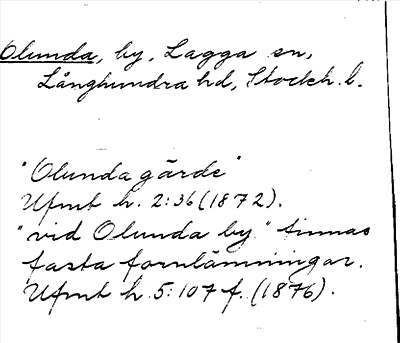 Olunda, by, Lagga sn,
Långhundra hd, Stockh. l.
"Olunda gärde"
Ufmt h. 2:36 (1872).
"vid Olunda by" finnas
fasta fornlämningar.
Ufmt h 5:107 f. (1876).